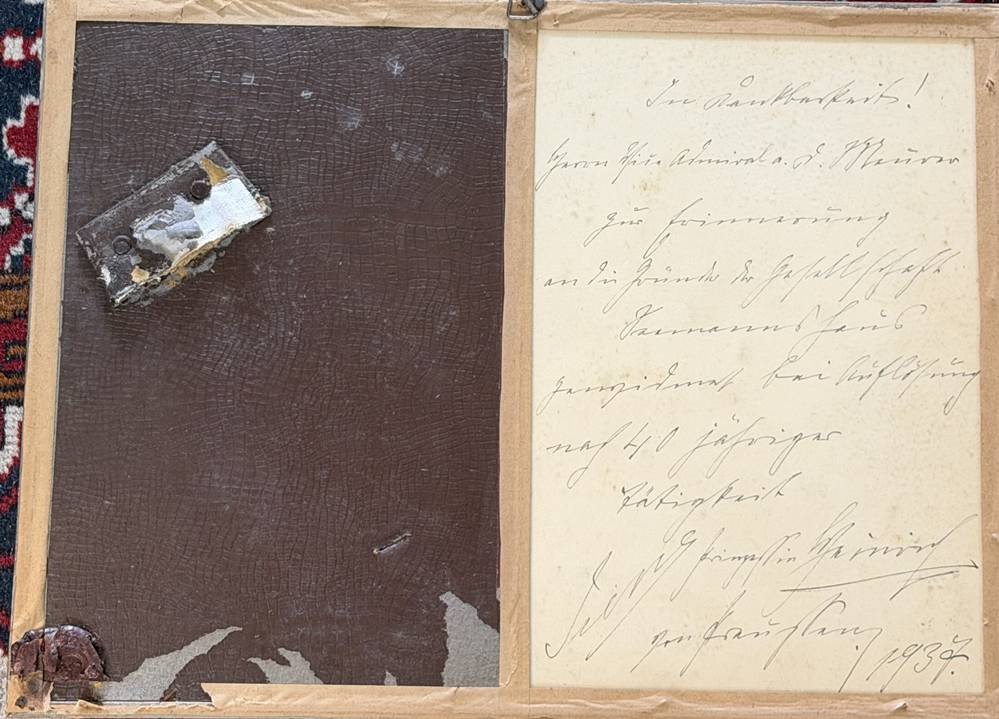 In Dankbarkeit!
Herrn Vice Admiral a. D. Meurer
zur Erinnerung
an die Gründer der Gesellschaft
Seemannshaus
gewidmet bei Auflösung
nach 40 jähriger
Tätigkeit
Prinzessin Heinrich
von Preussen
1934.